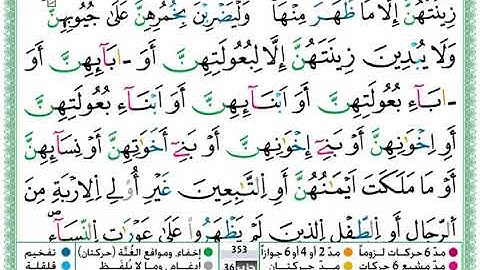 زِينَتَهُنَّ إِلَّا مَا ظَهَرَ مِنْهَا وَلْيَضْرِبْنَ بِخُمُرِهِنَّ عَلَىٰ جُيُوبِهِنَّ
وَلَا يُبْدِينَ زِينَتَهُنَّ إِلَّا لِبُعُولَتِهِنَّ أَوْ ءَابَآئِهِنَّ أَوْ
ءَابَآءِ بُعُولَتِهِنَّ أَوْ أَبْنَآئِهِنَّ أَوْ أَبْنَآءِ بُعُولَتِهِنَّ
أَوْ إِخْوَٰنِهِنَّ أَوْ بَنِىٓ إِخْوَٰنِهِنَّ أَوْ بَنِىٓ أَخَوَٰتِهِنَّ أَوْ نِسَآئِهِنَّ
أَوْ مَا مَلَكَتْ أَيْمَٰنُهُنَّ أَوِ ٱلتَّٰبِعِينَ غَيْرِ أُو۟لِى ٱلْإِرْبَةِ مِنَ
ٱلرِّجَالِ أَوِ ٱلطِّفْلِ ٱلَّذِينَ لَمْ يَظْهَرُوا۟ عَلَىٰ عَوْرَٰتِ ٱلنِّسَآءِ
مدّ 6 حركات لزوماً مدّ 2 أو 4 أو 6 جوازاً 353 إخفاء، ومواقع الغُنَّة (حركتان) تفخيم
مدّ حركتان إدغام، وما لا يُلفَظ قلقلة